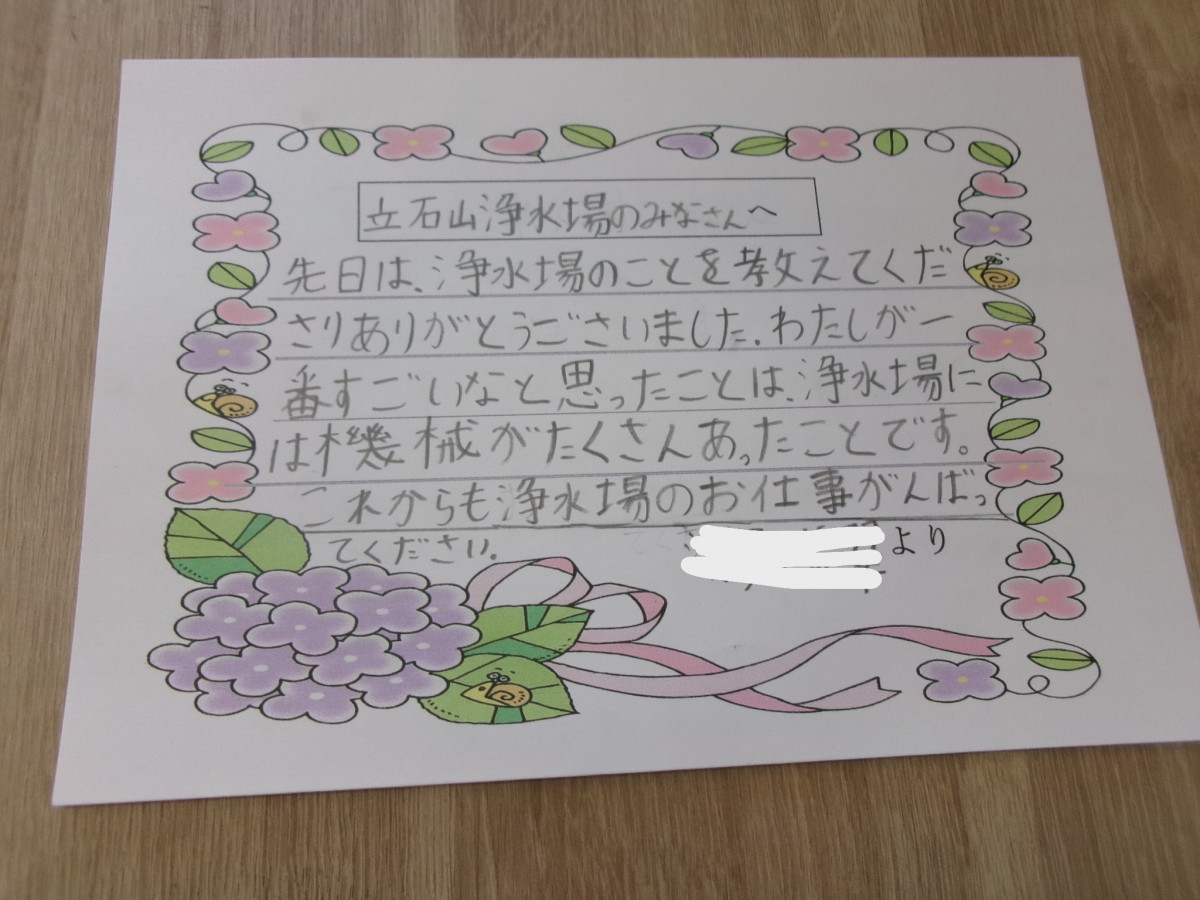 立石山浄水場のみなさんへ
先日は、浄水場のことを教えてくだ
さりありがとうございました。わたしが一
番すごいなと思ったことは、浄水場に
は機械がたくさんあったことです。
これからも浄水場のお仕事がんばっ
てください。
より